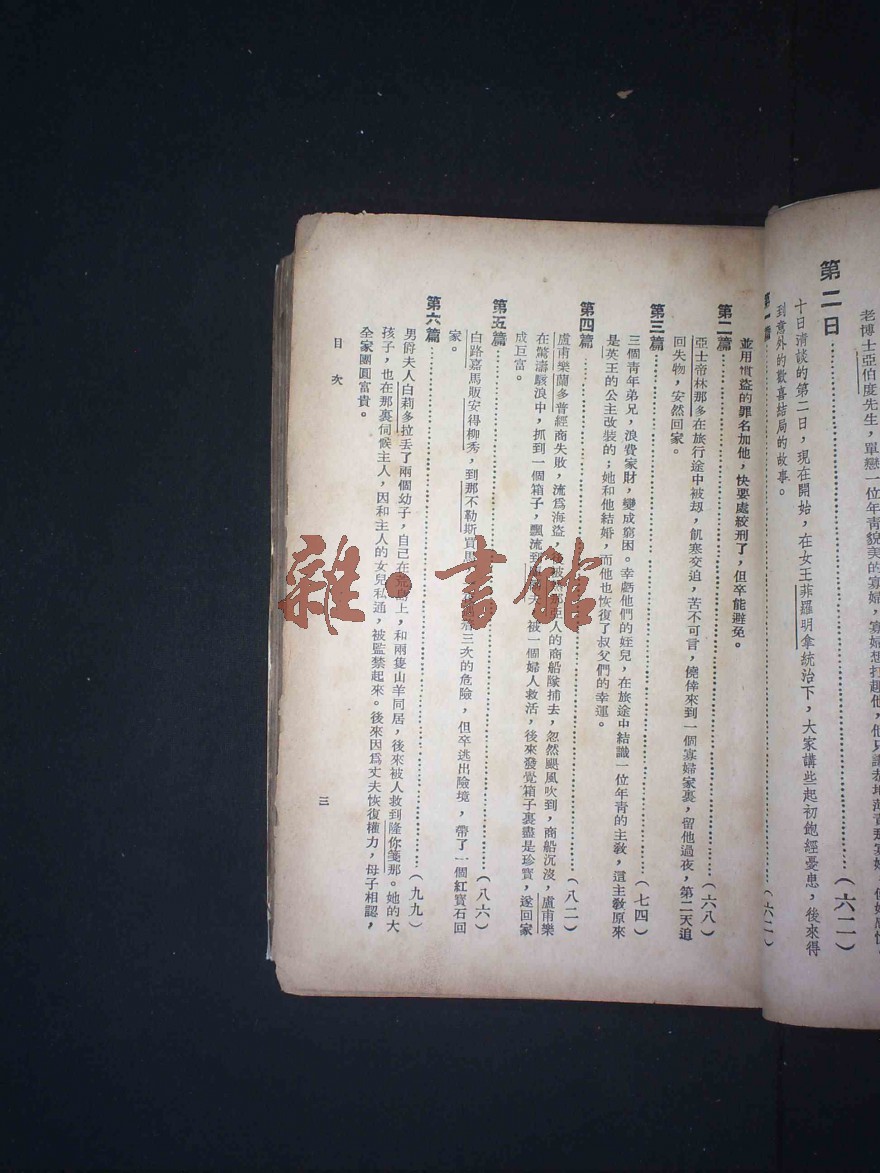 老博士亞伯度先生，單戀一位年靑貌美的寡婦，寡婦想打趣他，他只
第二日……（六二）
十日淸談的第二日，現在開始，在女王菲羅明拿統治下，大家講些起初飽經憂患，後來得
到意外的歡喜結局的故事。
第一篇……（六二）
並用慣盜的罪名加他，快要處絞刑了，但卒能避免。
第二篇……（六八）
亞士帝林那多在旅行途中被刼，飢寒交迫，苦不可言，僥倖來到一個寡婦家裏，留他過夜，第二天追
回失物，安然回家。
第三篇……（七四）
三個靑年弟兄，浪費家財，變成窮困。幸虧他們的姪兒，在旅途中結識一位年靑的主敎，這主敎原來
是英王的公主改裝的；她和他結婚，而他也恢復了叔父們的幸運。
第四篇……（八二）
盧甫樂蘭多普經商失敗，流爲海盜，被人的商船隊捕去，忽然颶風吹到，商船沉沒，盧甫樂
在驚濤駭浪中，抓到一個箱子，飄流到，被一個婦人救活，後來發覺箱子裏盡是珍寶，遂回家
成巨富。
第五篇……（八六）
白路嘉馬販安得柳秀，到那不勒斯買馬，三次的危險，但卒逃出險境，帶了一個紅寶石回
家。
第六篇……（九九）
男爵夫人白莉多拉丟了兩個幼子，自己在荒島上，和兩隻山羊同居，後來被人救到隆你箋那。她的大
孩子，也在那裏伺候主人，因和主人的女兒私通，被監禁起來。後來因爲丈夫恢復權力，母子相認，
全家團圓富貴。
目次
三
雜·書館